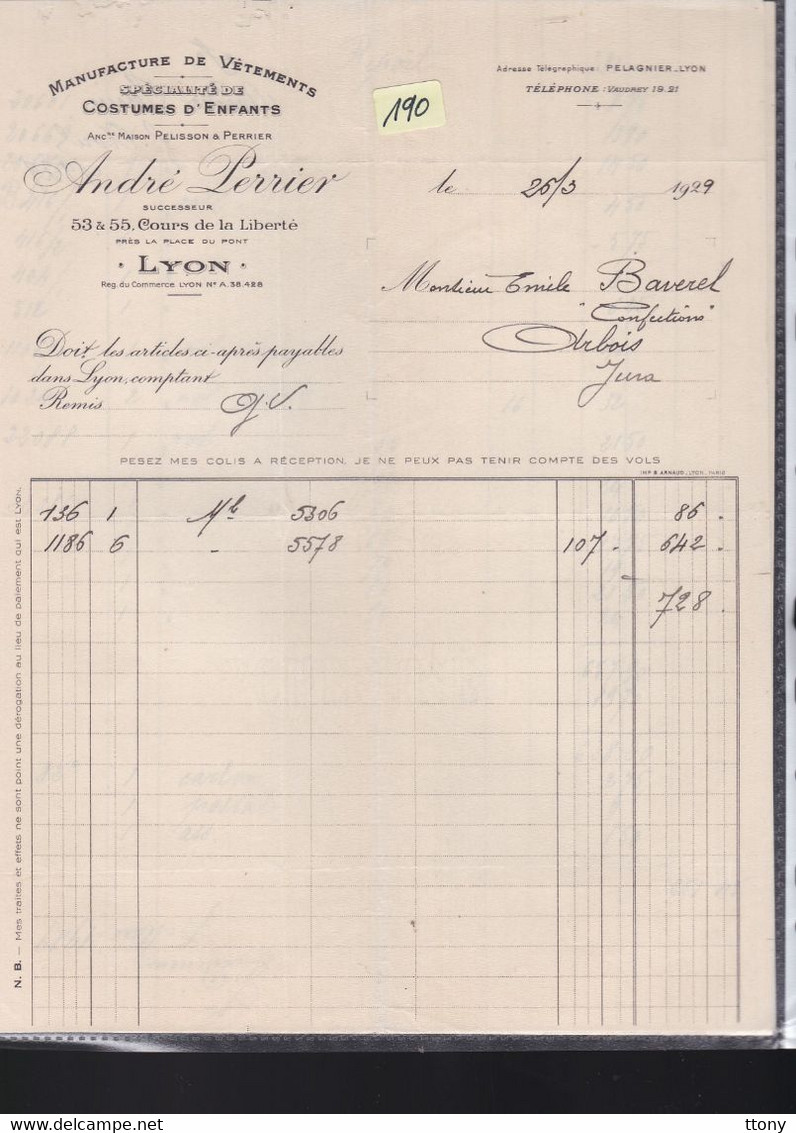 MANUFACTURE DE VÊTEMENTS
SPÉCIALITÉ DE
COSTUMES D'ENFANTS
ANCNE MAISON PELISSON & PERRIER
André Perrier
SUCCESSEUR
53 & 55, Cours de la Liberté
PRÈS LA PLACE DU PONT
LYON
Reg. du Commerce LYON N° A.38.428
Adresse Télégraphique: PELAGNIER_LYON
TÉLÉPHONE: VAUDREY 19.21
190
le 26/3 1929
Monsieur Emile Baverel
"Confections"
Arbois
Jura
Doit les articles ci-après payables
dans Lyon, comptant
Remis G.V.
PESEZ MES COLIS A RÉCEPTION, JE NE PEUX PAS TENIR COMPTE DES VOLS
IMP. B. ARNAUD, LYON, PARIS
136 1 5306 86.
1186 6 - 5578 107. 642.
728.
N. B. — Mes traites et effets ne sont point une dérogation au lieu de paiement qui est LYON.
ttony